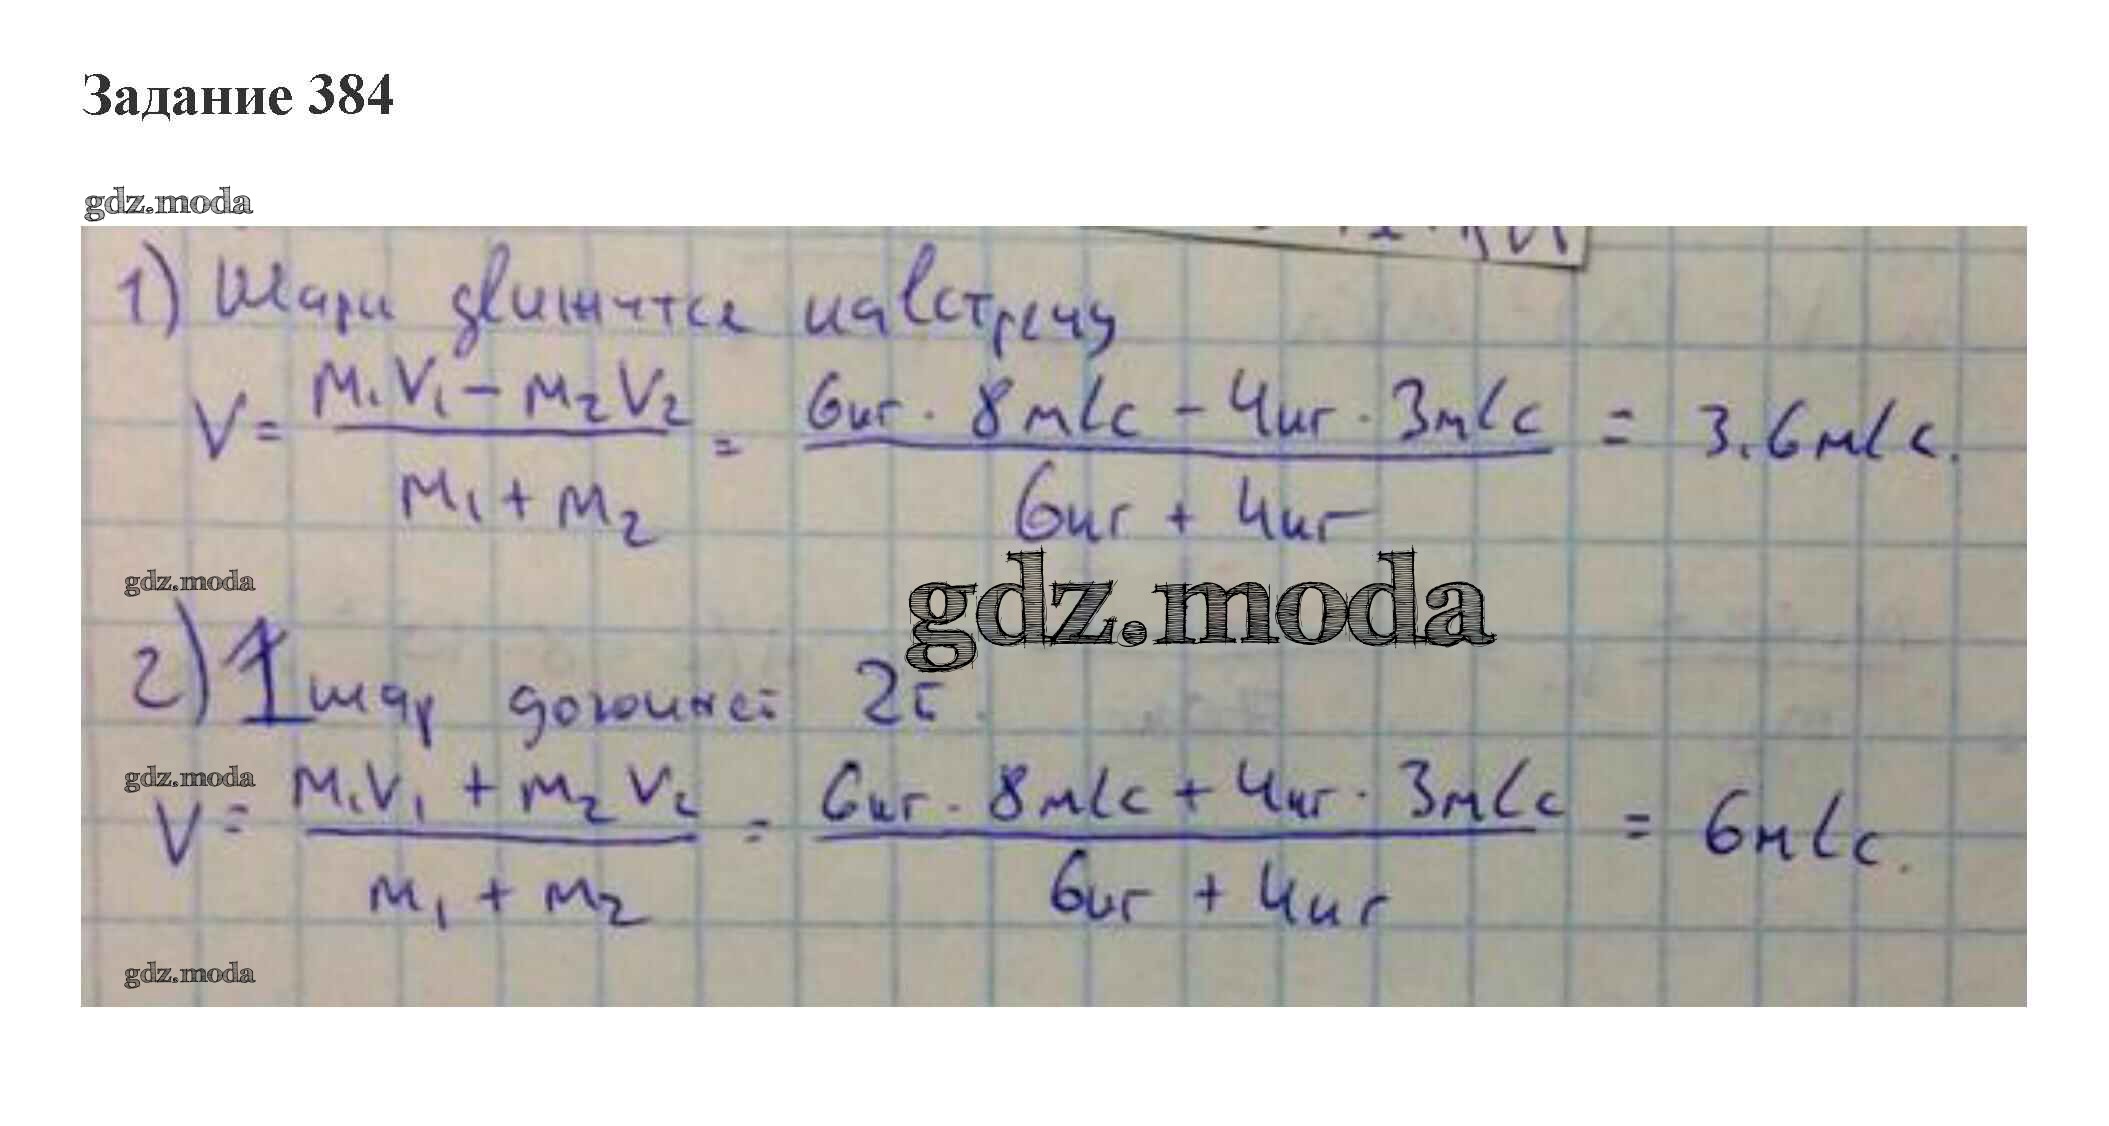 Задание 384
gdz.moda
1) Шары движутся навстречу
V = m₁V₁ - m₂V₂ / m₁ + m₂ = 6кг · 8м/с - 4кг · 3м/с / 6кг + 4кг = 3.6м/с.
gdz.moda
gdz.moda
2) 1 шар догоняет 2й.
gdz.moda
V = m₁V₁ + m₂V₂ / m₁ + m₂ = 6кг · 8м/с + 4кг · 3м/с / 6кг + 4кг = 6м/с.
gdz.moda